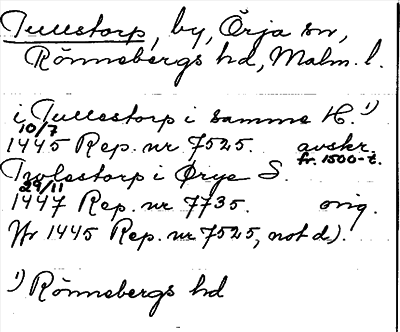 Tullstorp, by, Örja sn,
Rönnebergs hd, Malm. l.
i Tullestorp i samme H. 1)
10/7
1445 Rep. nr 7525. avskr.
fr. 1500-t.
Twlestorp i Ørye S.
29/11
1447 Rep. nr 7735. orig.
Nr 1445 Rep. nr 7525, not d).
1) Rönnebergs hd